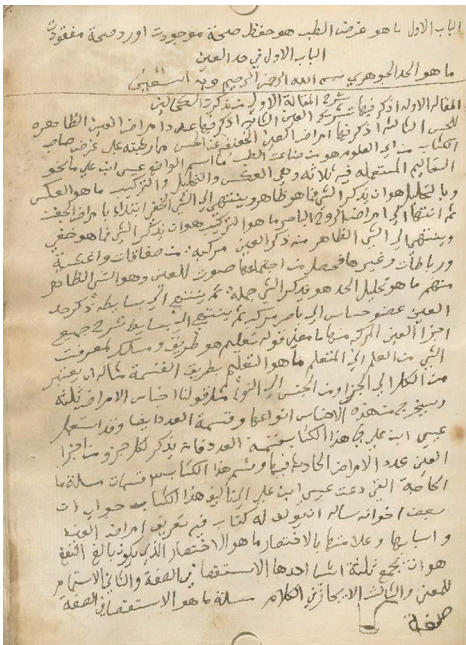 الباب الاول ما هو غرض الطب هو حفظ صحة موجودت اورد صحة مفقودت
الباب الاول في حد العين
ما هو الحد الجوهري بسم الله الرحمن الرحيم وبه استعين
شرح المقاله الاولى من تذكرت الكحالين
المقاله الاوله اذكر فيها العين الثانيه اذكر فيها عدد امراض العين الظاهره
للحس الثالثه اذكر فيها امراض العين الخفيه عن الحس
الكتاب من اي العلوم هو من صناعت الطب ما اسم الواضع عيسى ابن علي ما نحو
التعاليم المستعمله فيه ثلاثه وهي العكس والتحليل والتركيب ما هو العكس
وبالتحليل هو ان يذكر الشي فما هو ظاهر وينتهي الى الشي الخفي ابتداء بامراض الجفن
ثم انتها الى امراض الروح الباصر ما هو التركيب هو ان يذكر الشي فما هو خفي
وينتهي الى الشي الظاهر من ذكر العين مركبه من صفاقات واغشية
ورباطات وغيرها فحصل من اجتماعها صورت العين وهو الشي الظاهر
منهم ما هو تحليل الحد هو يذكر الشي جملة ثم ينتهي الى بسايطه ذكر حد
العين عضو حساس الي باصر مركبه ثم ينتهي الى بسايط شرح جميع
اجزا العين المركبه منها ما معنى قوله تعليم هو طريق ومسلك لمعرفت
الشي من العلم الى المتعلم ما هو التعليم بطريق القسمة مثاله ان يعتبر
من الكل الى الجزا ومن الجنس الى النوع مثل قولنا اجناس الامراض ثلثة
وسيخرج من هذه الاجناس انواعها وقسمة العدد ايضا وقد استعمل
عيسى ابن علي في هذا الكتاب قسمة العدد فانه يذكر لكل جزو من اجزا
العين عدد الامراض الحادثه فيها ورسم هذا الكتاب مسلة ما
الحاجة التي دعت عيسى ابن علي الى تاليف هذا الكتاب جوابه ان
بعض اخوانه ساله ان يولف له كتاب فيه تعريف امراض العين
واسبابها وعلامتها بالاختصار ما هو الاختصار الذي يكون بالغ النفع
هو ان يجمع ثلثة اشيا احدها الاستقصا في الصفة والثاني الاستتمام
للمعين والثالث الايجاز في الكلام مسلة ما هو الاستقصا في الصفة
صفة